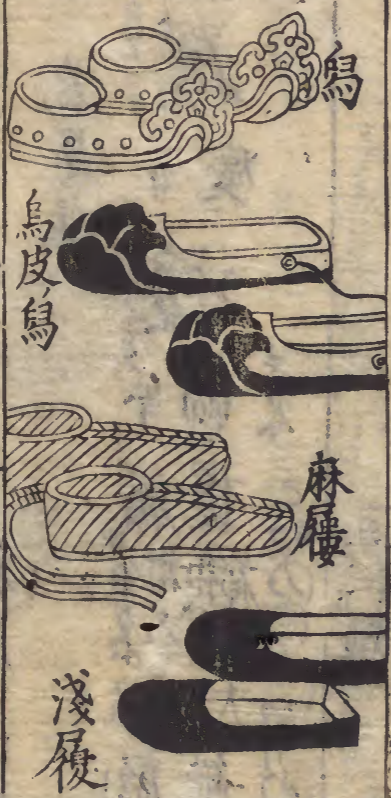 舄
烏皮舄
麻屨
淺履